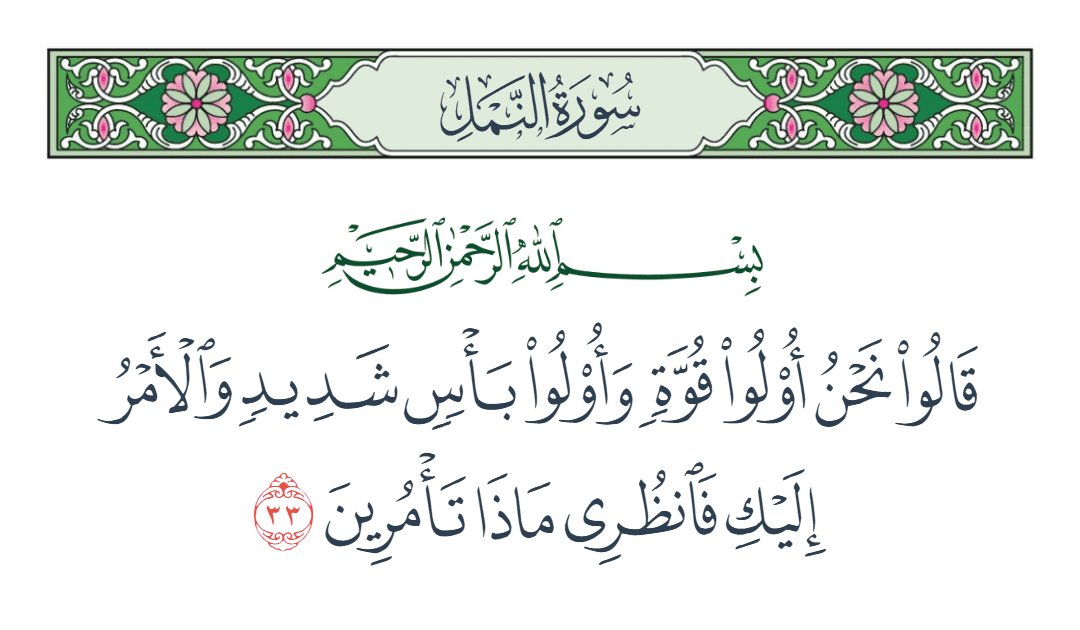 سُورَةُ النَّمْلِ
بِسْمِ ٱللَّهِ ٱلرَّحْمَٰنِ ٱلرَّحِيمِ
قَالُوا۟ نَحْنُ أُو۟لُوا۟ قُوَّةٍ وَأُو۟لُوا۟ بَأْسٍ شَدِيدٍ وَٱلْأَمْرُ
إِلَيْكِ فَٱنظُرِى مَاذَا تَأْمُرِينَ ٣٣